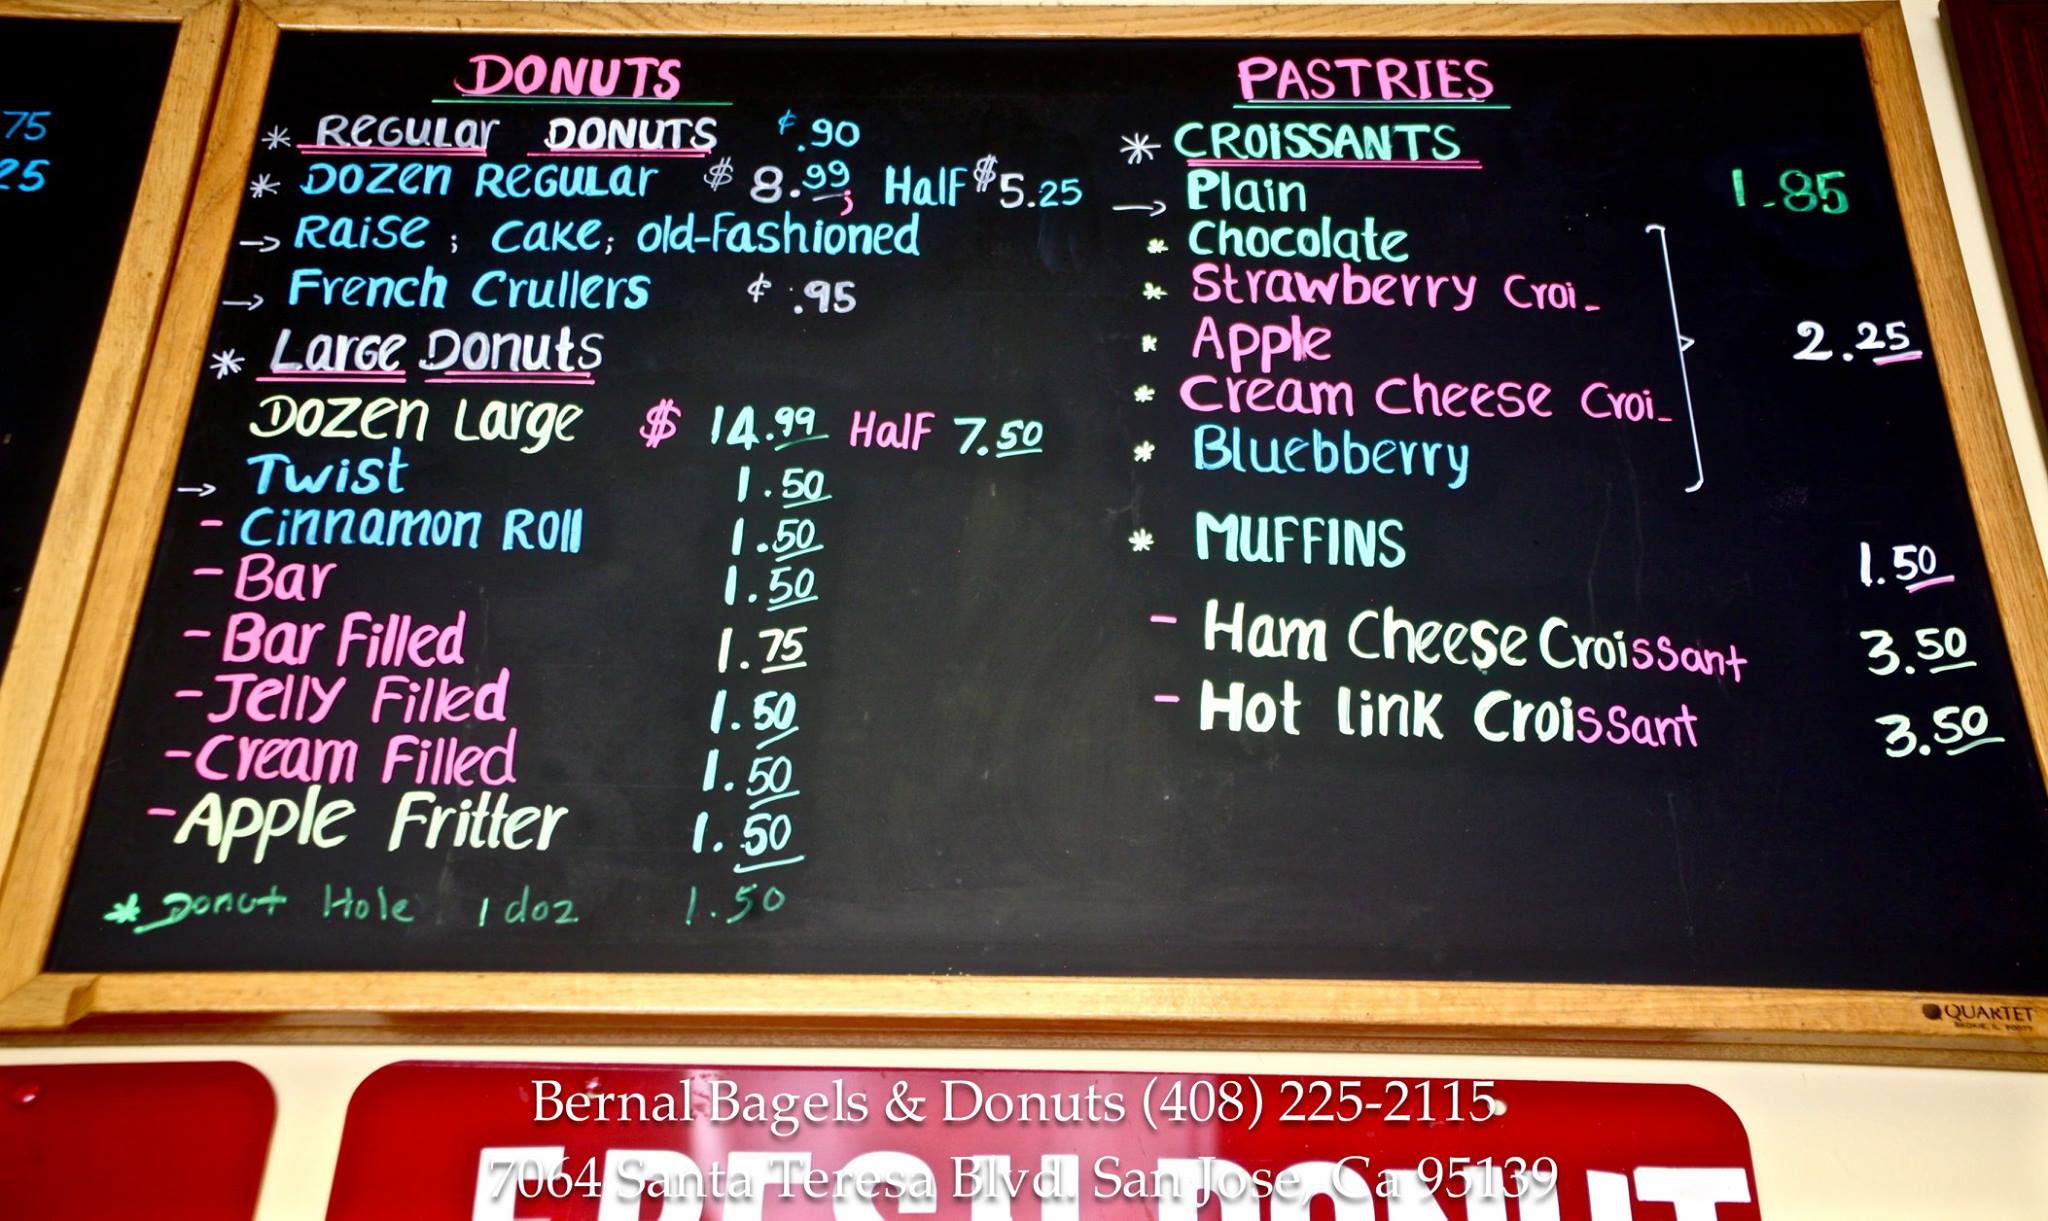 75
25
DONUTS
* REGULAR DONUTS ¢.90
* DOZEN REGULAR $8.99; Half $5.25
→ Raise ; cake; old-Fashioned
→ French Crullers ¢ .95
* Large Donuts
Dozen Large $ 14.99 Half 7.50
→ Twist 1.50
- Cinnamon Roll 1.50
- Bar 1.50
- Bar Filled 1.75
- Jelly Filled 1.50
- Cream Filled 1.50
- Apple Fritter 1.50
* Donut Hole 1 doz 1.50
PASTRIES
* CROISSANTS
→ Plain 1.85
* Chocolate
* Strawberry Croi_
* Apple
* Cream Cheese Croi_
* Bluebberry
2.25
* MUFFINS 1.50
- Ham Cheese Croissant 3.50
- Hot link Croissant 3.50
QUARTET
Bernal Bagels & Donuts (408) 225-2115
7064 Santa Teresa Blvd. San Jose, Ca 95139
FRESH DONUT